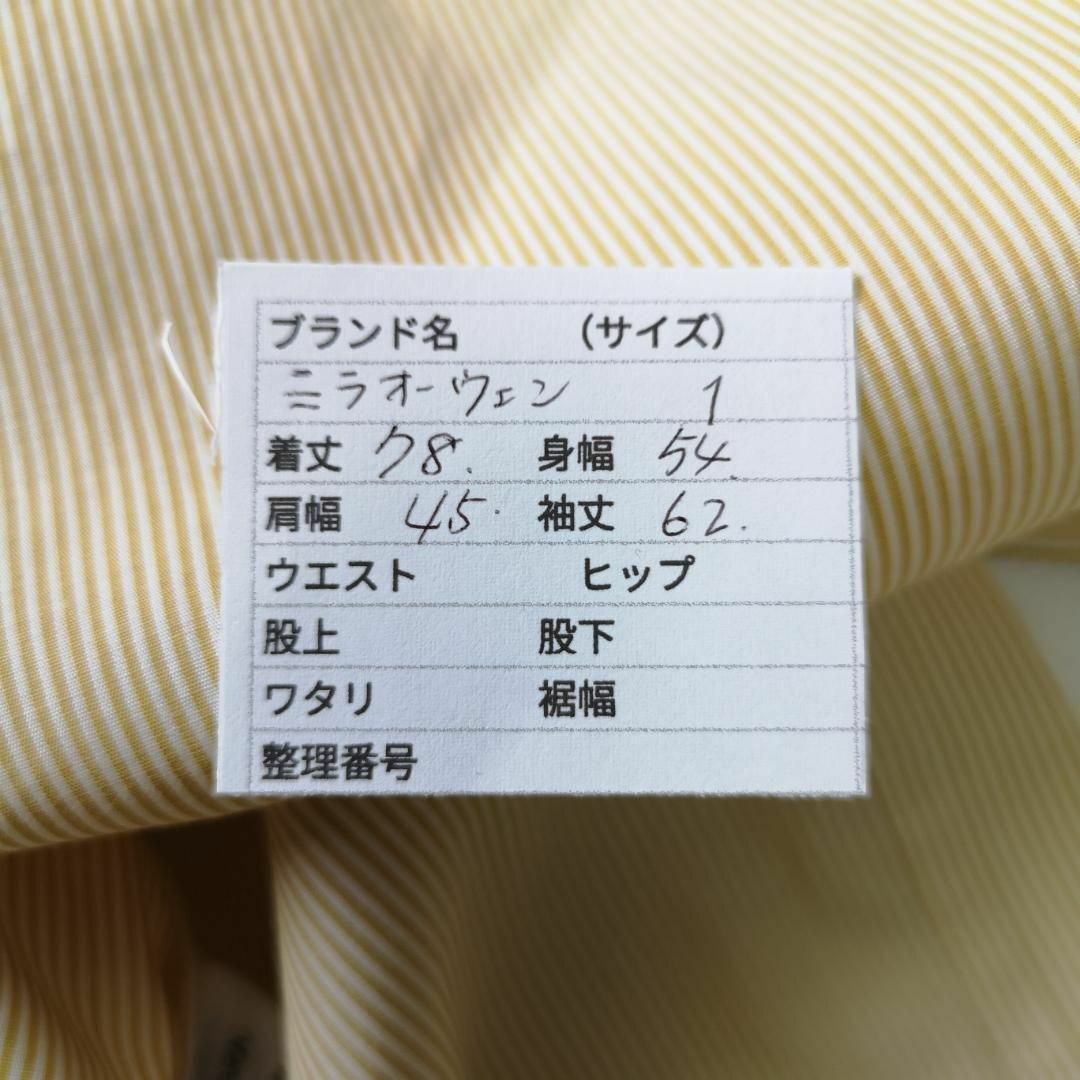 ブランド名 （サイズ）
ニラオーウェン 1
着丈 78. 身幅 54.
肩幅 45. 袖丈 62.
ウエスト ヒップ
股上 股下
ワタリ 裾幅
整理番号